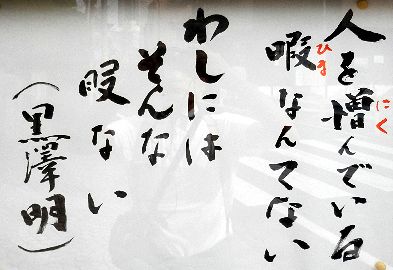 人を憎んでいる
にく
暇なんてない
ひま
わしには
そんな
暇ない
（黒澤明）